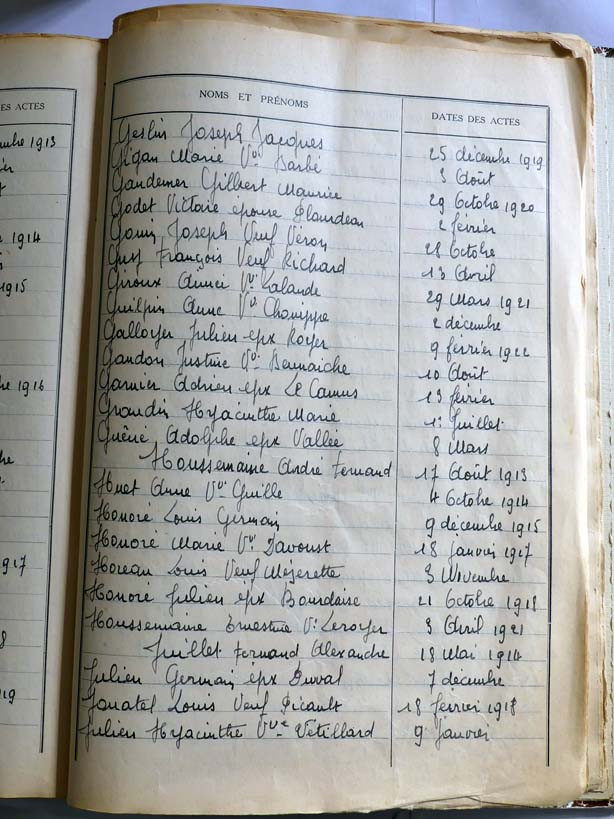 ES ACTES
NOMS ET PRÉNOMS
DATES DES ACTES
Geslin Joseph Jacques 25 décembre 1919
Gigan Marie Vve Barbé 3 Août
Gandemer Gilbert Maurice 29 Octobre 1920
Godet Victoire épouse Plaudeau 2 février
Gouin Joseph Veuf Véron 28 Octobre
François Veuf Richard 13 Avril
Giroux Anne Vve Lalande 29 Mars 1921
Guilpin Anne Vve 2 décembre
Galloyer Julien epx Royer 9 février 1922
Gandon Justine Vve 10 Août
Garnier Adrien epx Le Camus 13 février
Grandin Hyacinthe Marie 1er Juillet
Guéné Adolphe epx Vallée 8 Mars
Houssemaine André Fernand 17 Août 1913
Huet Anne Vve Guille 4 Octobre 1914
Honoré Louis Germain 9 décembre 1915
Honoré Marie Vve Davoust 18 janvier 1917
Horeau Louis Veuf Mézerette 3 Novembre
Honoré Julien epx Bourdaise 21 Octobre 1918
Houssemaine Ernestine Ve Leroyer 3 Avril 1921
Juillet Fernand Alexandre 18 Mai 1914
Julien Germain epx Duval 7 décembre
Janatel Louis Veuf Picault 18 février 1918
Julien Hyacinthe Vve Vetillard 9 Janvier